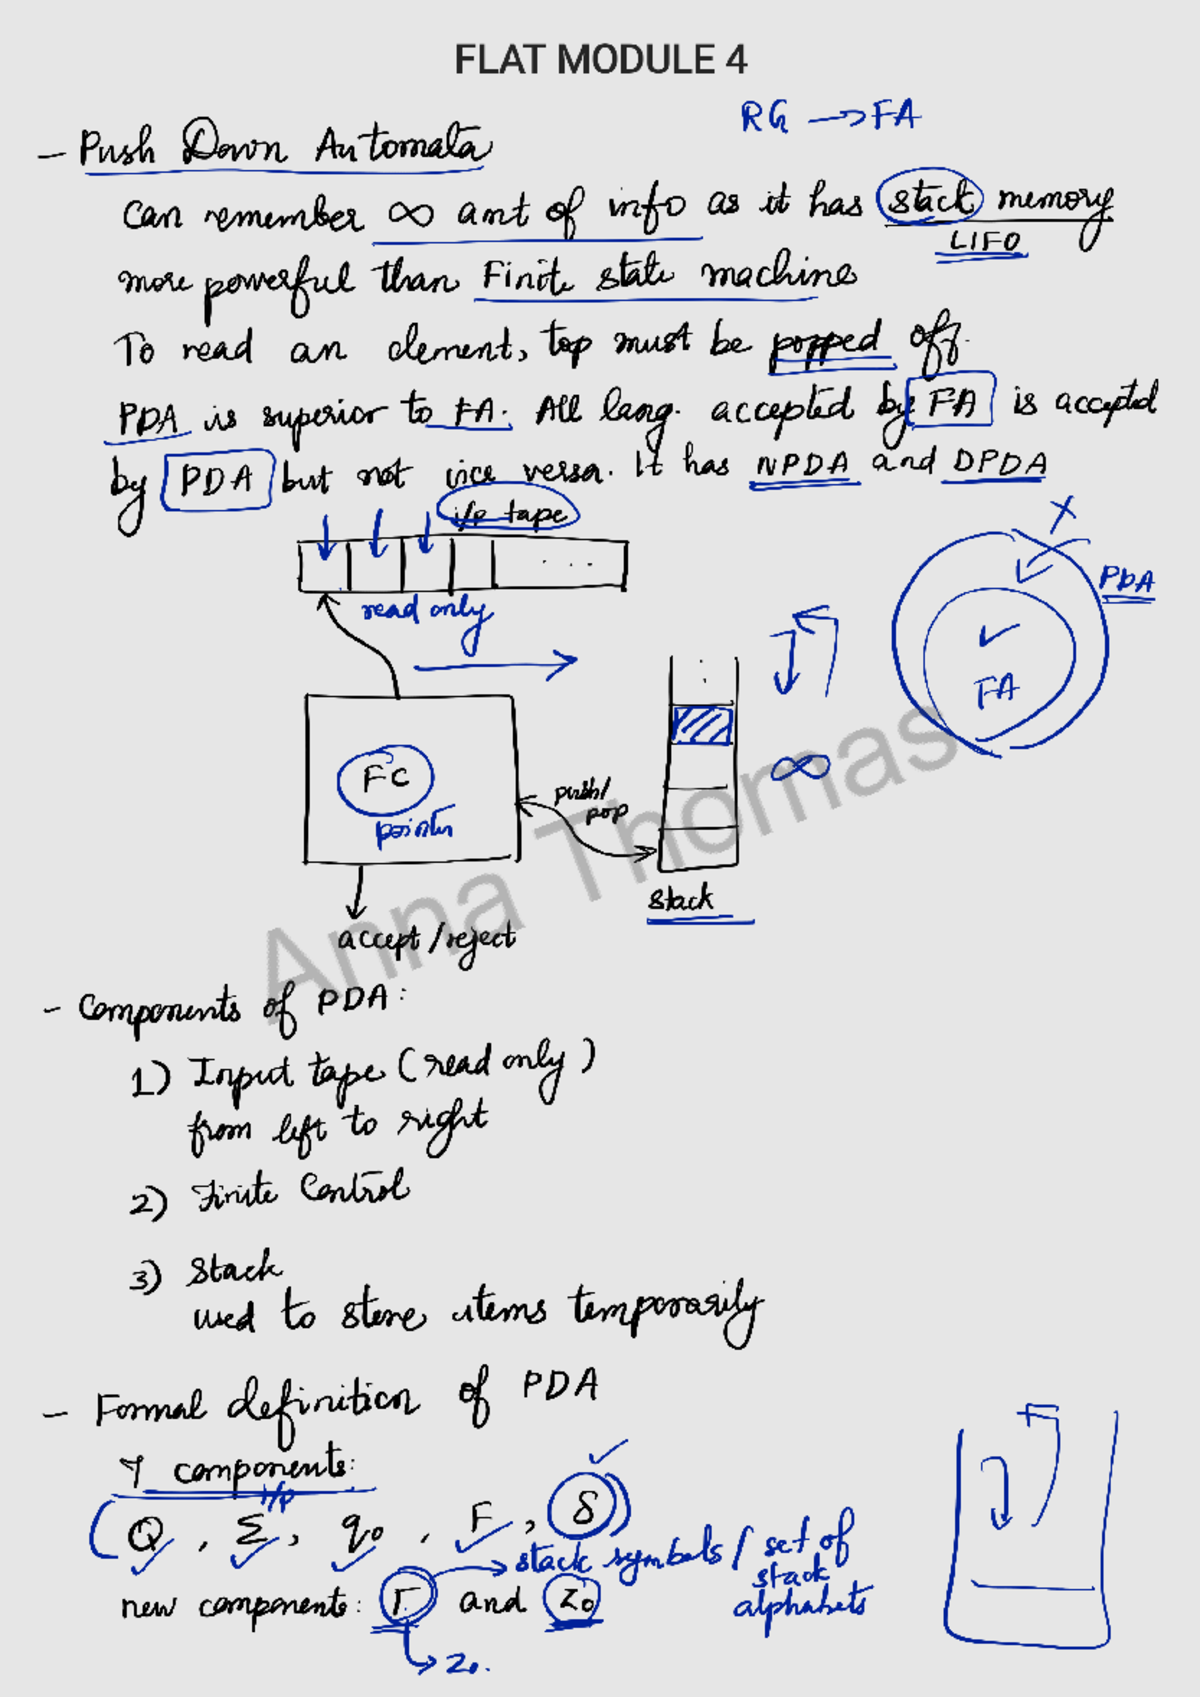 FLAT MODULE 4
RG → FA
- Push Down Automata
can remember ∞ amt of info as it has stack memory
LIFO
more powerful than Finite state machine
To read an element, top must be popped off.
PDA is superior to FA. All lang. accepted by FA is accepted
by PDA but not vice versa. It has NPDA and DPDA
i/p tape
. . .
read only
X
PDA
✓
FA
FC
pointer
push/
pop
∞
stack
accept/reject
Anna Thomas
- Components of PDA:
1) Input tape (read only)
from left to right
2) Finite Control
3) Stack
used to store items temporarily
- Formal definition of PDA
7 components:
i/p
(Q, Σ, q0, F, δ)
stack symbols / set of
stack
alphabets
new components: Γ and Z0
→ Z0.